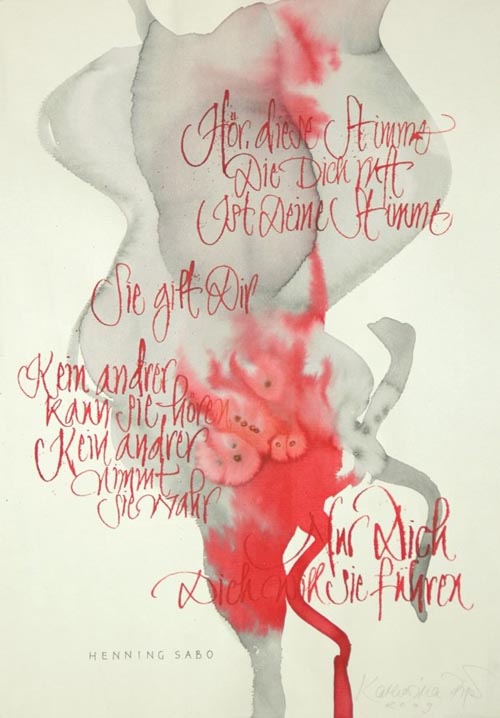 Hör, diese Stimme
Die Dich ruft
Ist Deine Stimme
Sie gilt Dir
Kein andrer
kann sie hören
Kein andrer
nimmt
sie wahr
Nur Dich
Dich will sie führen
HENNING SABO
Katharina
2009